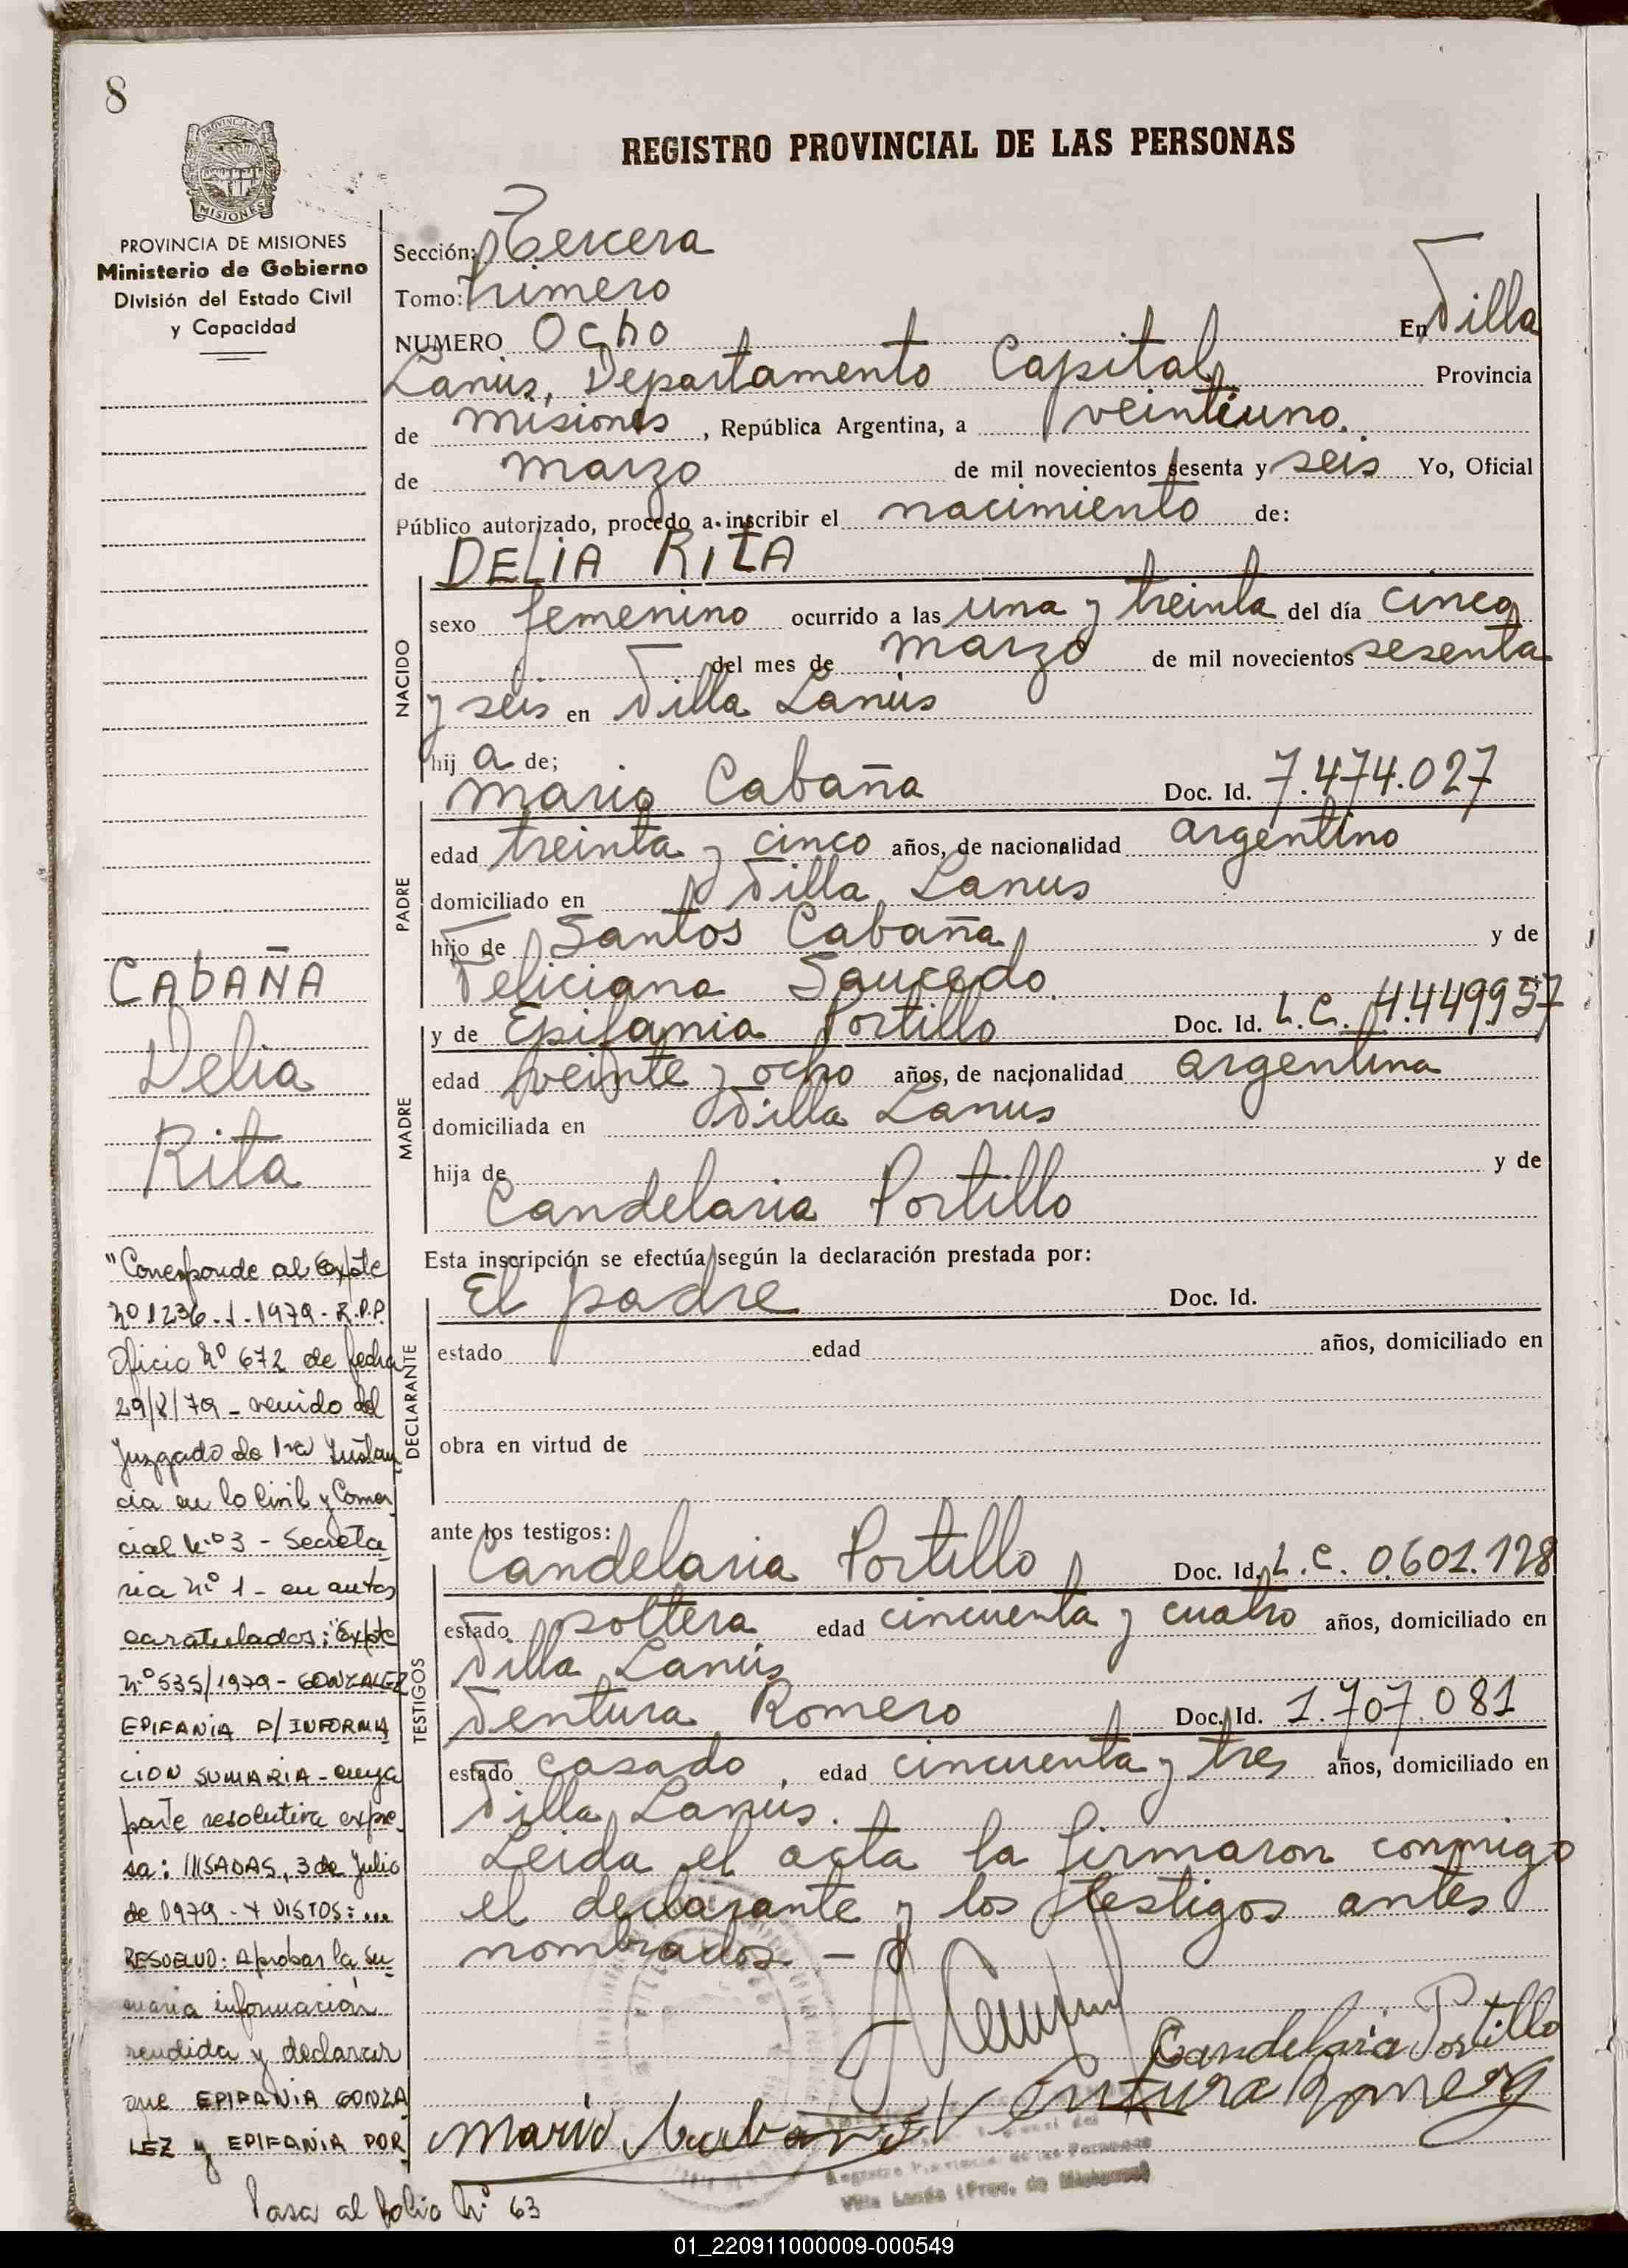 8
PROVINCIA DE MISIONES
MISIONES
PROVINCIA DE MISIONES
Ministerio de Gobierno
División del Estado Civil
y Capacidad
REGISTRO PROVINCIAL DE LAS PERSONAS
Sección: Tercera
Tomo: Primero
NUMERO Ocho En Villa
Lanús, Departamento Capital, Provincia
de Misiones, República Argentina, a veintiuno.
de Marzo de mil novecientos sesenta y seis Yo, Oficial
Público autorizado, procedo a inscribir el nacimiento de:
DELIA RITA
NACIDO
sexo femenino ocurrido a las una y treinta del día cinco
del mes de Marzo de mil novecientos sesenta
y seis en Villa Lanús
hij a de;
Mario Cabaña Doc. Id. 7.474.027
PADRE
edad treinta y cinco años, de nacionalidad argentino
domiciliado en Villa Lanus
hijo de Santos Cabaña y de
Feliciana Saucedo.
MADRE
y de Epifania Portillo Doc. Id. L.C. 4.449957
edad veinte y ocho años, de nacionalidad argentina
domiciliada en Villa Lanus
hija de y de
Candelaria Portillo
Esta inscripción se efectúa según la declaración prestada por:
DECLARANTE
El padre Doc. Id.
estado edad años, domiciliado en
obra en virtud de
ante los testigos:
TESTIGOS
Candelaria Portillo Doc. Id. L.C. 0.601.128
estado soltera edad cincuenta y cuatro años, domiciliado en
Villa Lanús
Ventura Romero Doc. Id. 1.707.081
estado casado, edad cincuenta y tres años, domiciliado en
Villa Lanús.
Leida el acta la firmaron conmigo
el declarante y los testigos antes
nombrados. -
Candelaria Portillo
Ventura Romero
Mario Cabaña
Registro Provincial de las Personas
Villa Lanús (Prov. de Misiones)
CABAÑA
Delia
Rita
"Corresponde al Expte
Nº 1236-1-1979-R.P.P.
Oficio Nº 672 de fecha
29/8/79 - venido del
Juzgado de 1ra Instan
cia en lo Civil y Comer
cial Nº 3 - Secreta
ria Nº 1 - en autos
caratulados: "Expte
Nº 535/1979 - GONZALEZ
EPIFANIA S/INFORMA
CION SUMARIA - cuya
parte resolutiva expre
sa: POSADAS, 3 de Julio
de 1979 - Y VISTOS: ...
RESUELVO: Aprobar la su-
maria información
rendida y declarar
que EPIFANIA GONZA
LEZ y EPIFANIA POR
Pasa al folio Nº 63
01_220911000009-000549